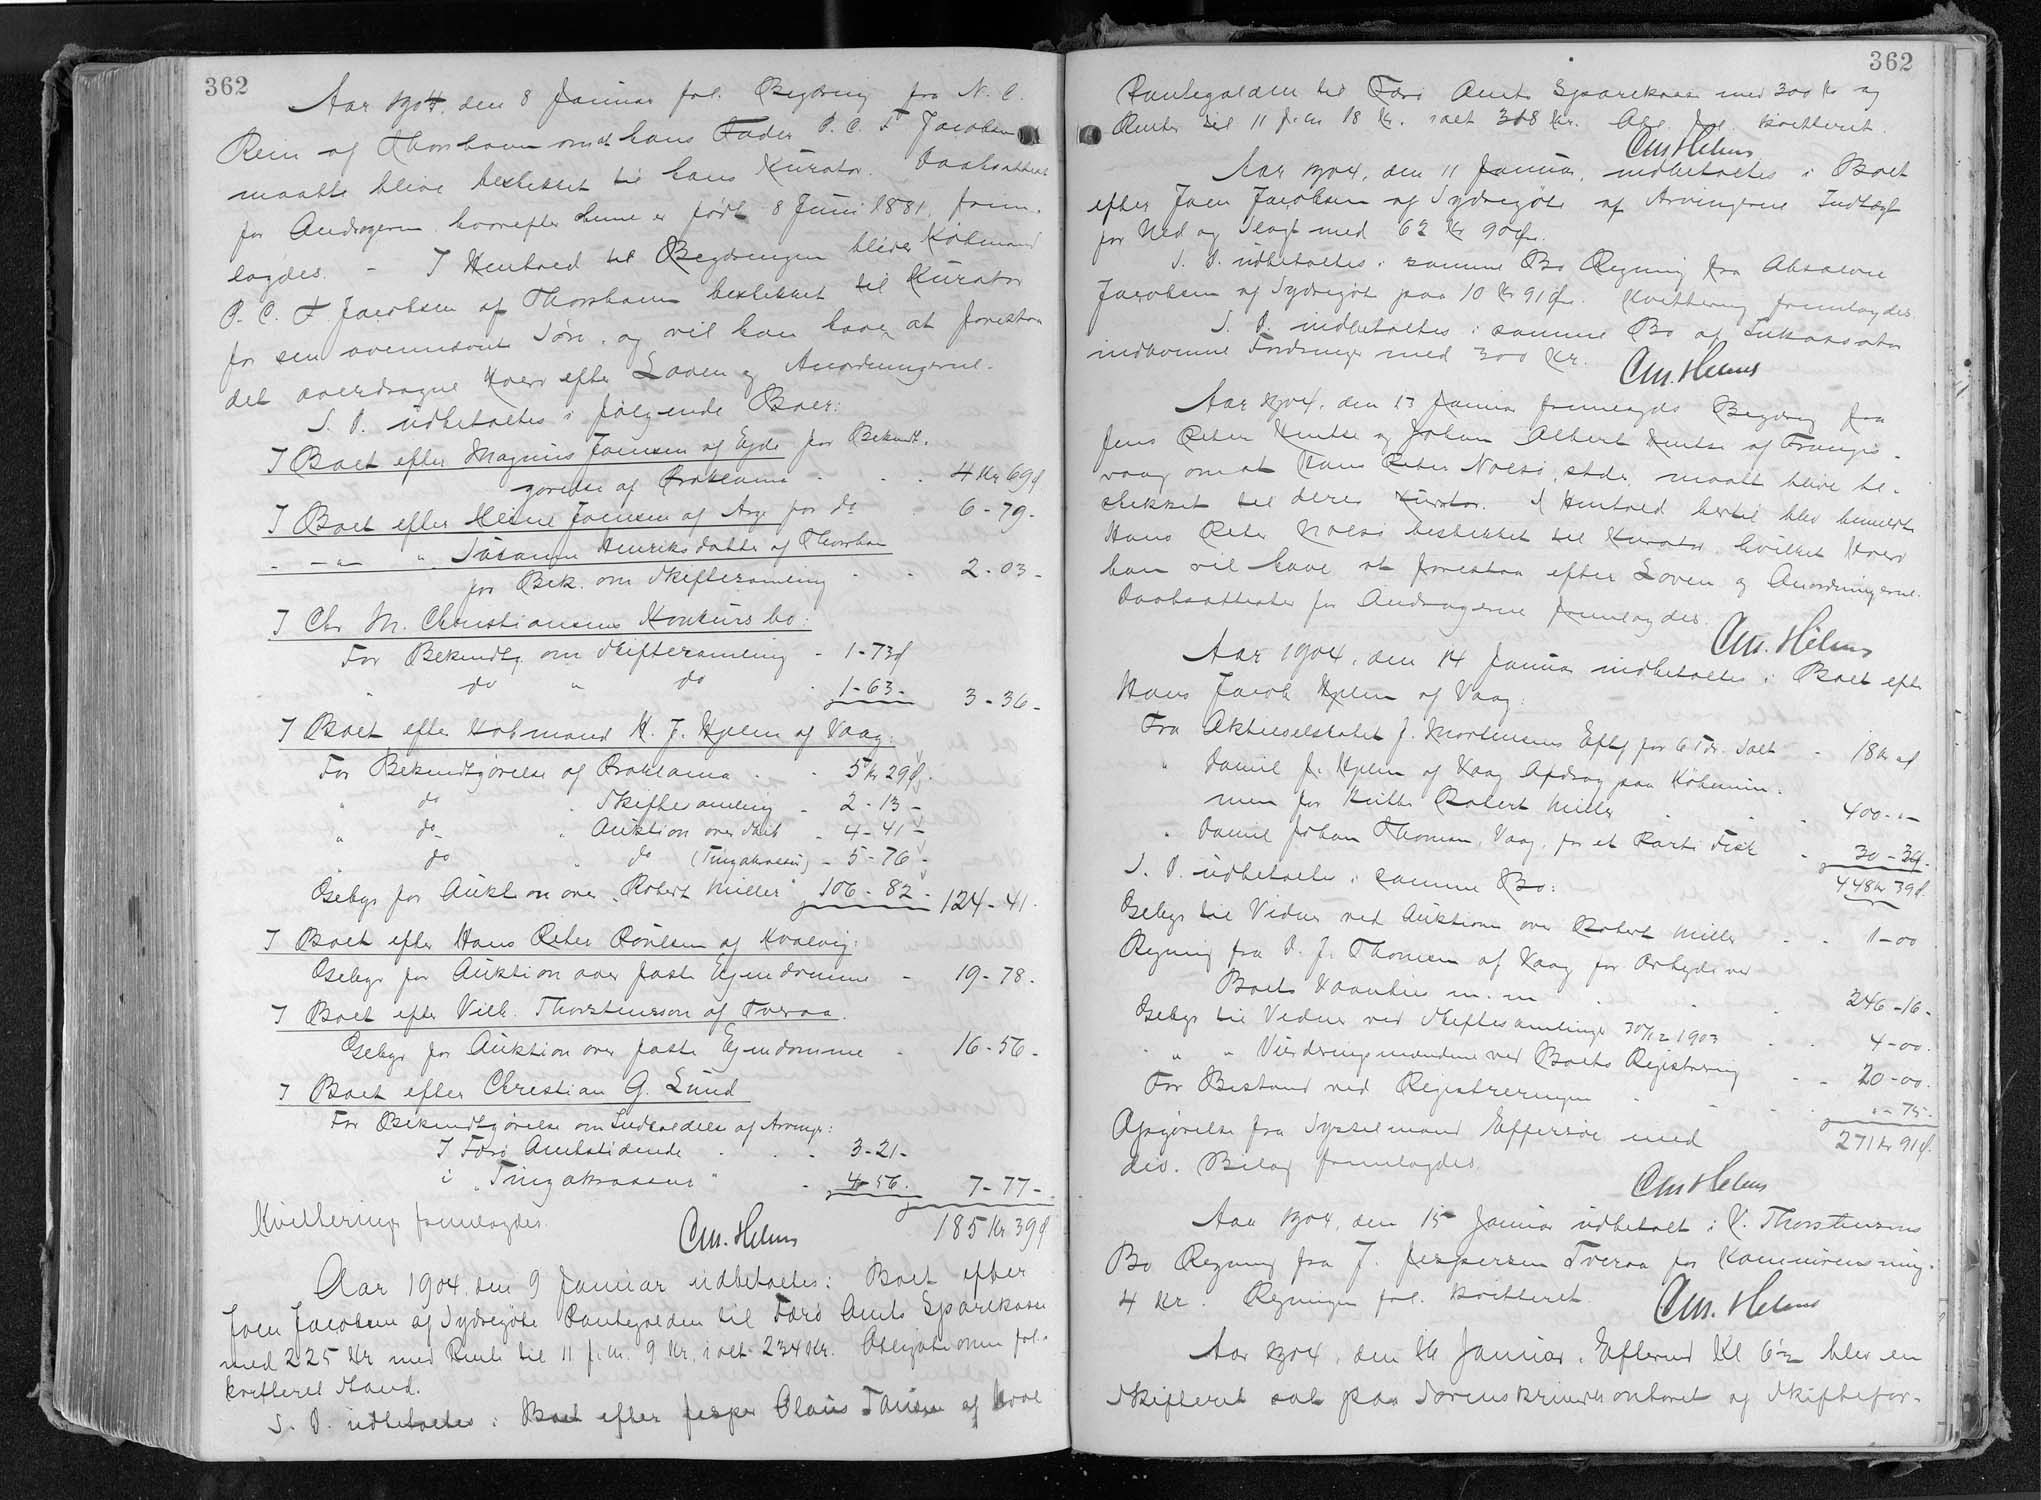 362
Aar 1904, den 8 Januar frl. Begæring fra N. C.
Rein af Thorshavn om at hans Fader P. C. F. Jacobsen
maatte blive beskikket til hans Kurator. Daabsattest
for Andrageren, hvorefter denne er født 8 Juni 1881, frem-
lagdes. - I Henhold til Begæringen bliver Købmand
P. C. F. Jacobsen af Thorshavn beskikket til Kurator
for sin ovennævnte Søn, og vil han have at forestaa
det overdragne Hverv efter Loven og Anordningerne.
S. D. udbetaltes i følgende Boer:
I Boet efter Magnus Joensen af Ejde for Bekendt-
gørelse af Proklama - 4 Kr 69 Ø
I Boet efter Heine Joensen af Arge for do - 6-79-
- - " - " Susanne Henriksdatter af Thorshavn
for Bek. om Skiftesamling - 2-03-
I Chr M. Christiansens Konkursbo:
For Bekendtg. om Skiftesamling - 1-73 Ø
" do " do - 1-63- 3-36-
I Boet efter Købmand H. J. Hjelm af Vaag:
For Bekendtgørelse af Proklama - 5 Kr 29 Ø.
" do " Skiftesamling - 2-13-
" do " Auktion over - 4-41-
" do " do (Tingakrossur) - 5-76-
Gebyr for Auktion over "Robert Miller" 106-82- 124-41.
I Boet efter Hans Peter Poulsen af Kvalvig:
Gebyr for Auktion over faste Ejendomme - 19-78.
I Boet efter Vilh. Thorsteinsson af Tveraa.
Gebyr for Auktion over faste Ejendomme - 16-56-
I Boet efter Christian G. Lund
For Bekendtgørelse om Indkaldelse af Arvinger:
I Færø Amtstidende - 3-21-
i "Tingakrossur" - 4-56. 7-77-
Kvitteringer fremlagdes. 185 Kr 39 Ø
Chr. Helms
Aar 1904, den 9 Januar udbetaltes i Boet efter
Joen Jacobsen af Sydregöte Pantegælden til Færø Amts Sparekasse
med 225 Kr med Rente til 11 f. m. 9 Kr, ialt 234 Kr. Obligationen frl. i
kvitteret Stand.
S. D. udbetaltes i Boet efter Jesper Olaus af Hval
362
Pantegælden til Færø Amts Sparekasse med 300 Kr og
Renter til 11 f. m. 18 Kr. ialt 318 Kr. Obl. frl. kvitteret.
Chr. Helms
Aar 1904, den 11 Januar, indbetaltes i Boet
efter Joen Jacobsen af Sydregöte af Arvingerne Indtægt
for Uld og Slagt med 62 Kr 90 Ø.
S. D. udbetaltes i samme Bo Regning fra Absalon
Jacobsen af Sydregöte paa 10 Kr 91 Ø. Kvittering fremlagdes.
S. D. indbetaltes i samme Bo af Inkassator
indkomne Fordringer med 300 Kr.
Chr. Helms
Aar 1904, den 13 Januar fremlagdes Begæring fra
Jens Peter og Johan Albert af Frangis-
vaag om at Hans Peter Nolsø, stds, maatte blive be-
skikket til deres Kurator. I Henhold hertil blev bemeldte
Hans Peter Nolsø beskikket til Kurator, hvilket Hverv
han vil have at forestaa efter Loven og Anordningerne.
Daabsattester for Andragerne fremlagdes.
Chr. Helms
Aar 1904, den 14 Januar indbetaltes i Boet efter
Hans Jacob Hjelm af Vaag:
Fra Aktieselskabet J. Mortensens Eftf for 6 Tdr. Salt - 18 Kr
" Daniel J. Hjelm af Vaag Afdrag paa Købesum-
men for Kutter Robert Miller - 400-"-
" Daniel Johan Thomsen, Vaag, for et Parti Fisk - 30-39.
448 Kr 39 Ø
S. D. udbetaltes i samme Bo:
Gebyr til Vidner ved Auktion over Robert Miller - 1-00
Regning fra D. J. Thomsen af Vaag for Arbejde ved
Boets m. m. - 246-16-
Gebyr til Vidner ved Skiftesamlinger 30/12 1903 - 4-00.
" " Vurderingsmændene ved Boets Registrering - 20-00.
For Bistand ved Registreringen - "-75-
271 Kr 91 Ø.
Afgørelse fra Sysselmand Effersøe med
div. Bilag fremlagdes.
Chr. Helms
Aar 1904, den 15 Januar udbetalt i V. Thorsteinssons
Bo Regning fra J. Jespersen Tveraa for
4 Kr. Regningen frl. kvitteret.
Chr. Helms
Aar 1904, den 16 Januar, Eftermd Kl 6½ blev en
Skifteret sat paa Sorenskriverkontoret og Skiftefor-